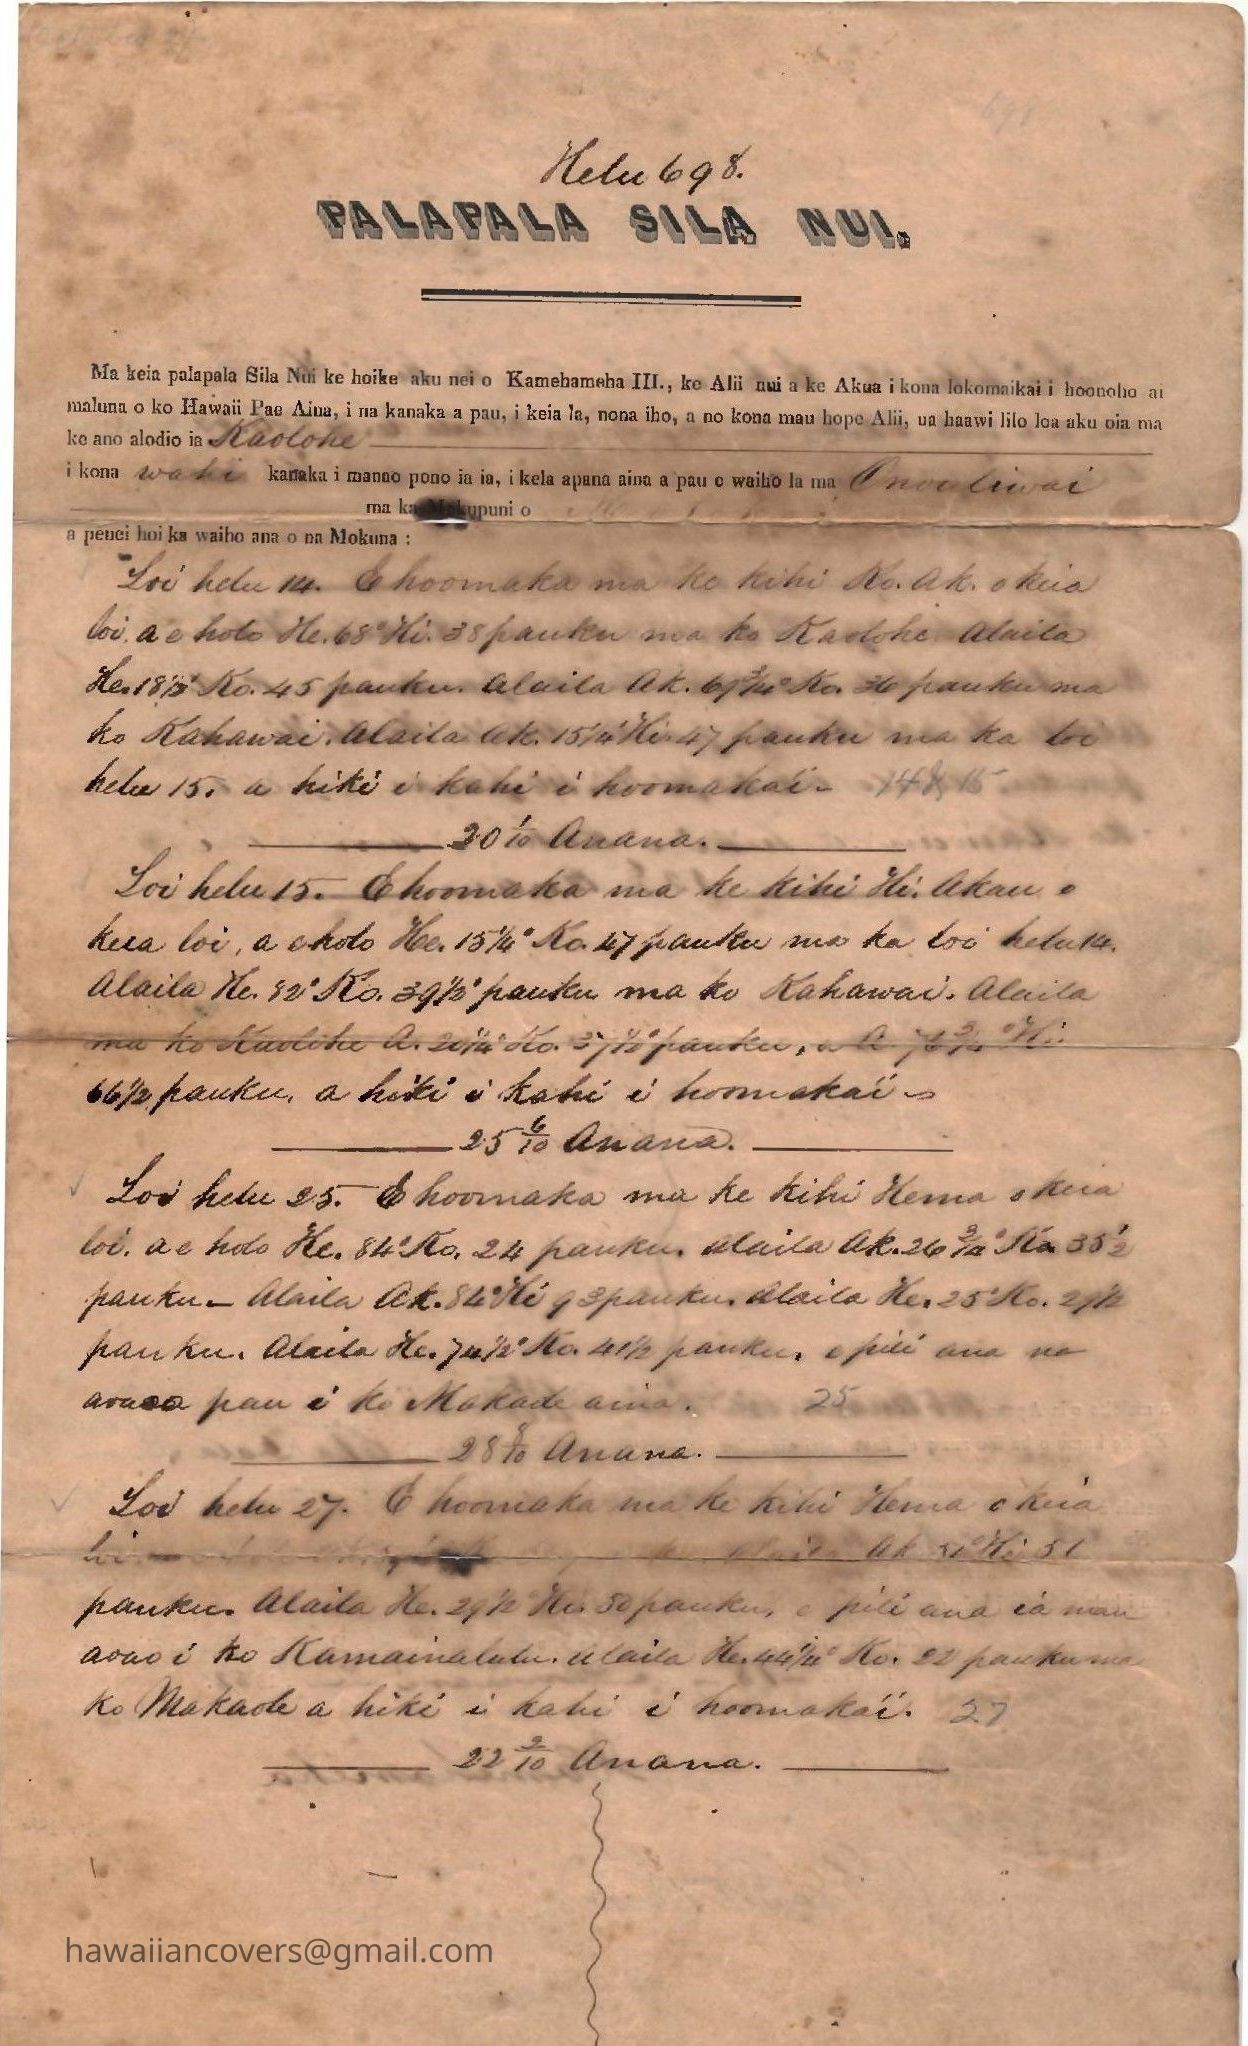 Helu 698.
PALAPALA SILA NUI.
Ma keia palapala Sila Nui ke hoike aku nei o Kamehameha III., ke Alii nui a ke Akua i kona lokomaikai i hoonoho ai
maluna o ko Hawaii Pae Aina, i na kanaka a pau, i keia la, nona iho, a no kona mau hope Alii, ua haawi lilo loa aku oia ma
ke ano alodio ia Kaolohe
i kona wahi kanaka i manao pono ia ia, i kela apana aina a pau e waiho la ma Onouliwai
ma ka Mokupuni o
a penei hoi ka waiho ana o na Mokuna:
Loi helu 14. E hoomaka ma ke kihi Ko. Ak. o keia
loi, a e holo He. 68° Hi. 38 pauku ma ko Kaolohe Alaila
He. 18 1/2° Ko. 45 pauku. Alaila Ak. 69 3/4° Ko. 36 pauku ma
ko Kahawai. Alaila Ak. 15 1/4° Hi. 47 pauku ma ka loi
helu 15. a hiki i kahi i hoomakai. 14 & 15
20 1/10 Anana.
Loi helu 15. E hoomaka ma ke kihi Hi. Akau o
keia loi, a e holo He. 15 1/4° Ko. 47 pauku ma ka loi helu 14.
Alaila He. 82° Ko. 39 1/2 pauku ma ko Kahawai. Alaila
ma ko Kaolohe A. Ko. pauku, a A 76 3/4° Hi.
66 1/2 pauku, a hiki i kahi i hoomakai
25 6/10 Anana.
Loi helu 25. E hoomaka ma ke kihi Hema o keia
loi. a e holo He. 84° Ko. 24 pauku. Alaila Ak. 26 3/4° Ko. 35 1/2
pauku. Alaila Ak. 84° Hi 93 pauku. Alaila He. 25° Ko. 29 1/2
pauku. Alaila He. 74 1/2° Ko. 41 1/2 pauku. e pili ana na
aoao pau i ko Makaole aina. 25
28 8/10 Anana.
Loi helu 27. E hoomaka ma ke kihi Hema o keia
loi Alaila Ak 51° Hi 51
pauku. Alaila He. 29 1/2° Hi. 50 pauku, e pili ana ia mau
aoao i ko Kamainalulu. Alaila He. 44 1/4° Ko. 22 pauku ma
ko Makaole a hiki i kahi i hoomakai. 27
22 2/10 Anana.
hawaiiancovers@gmail.com